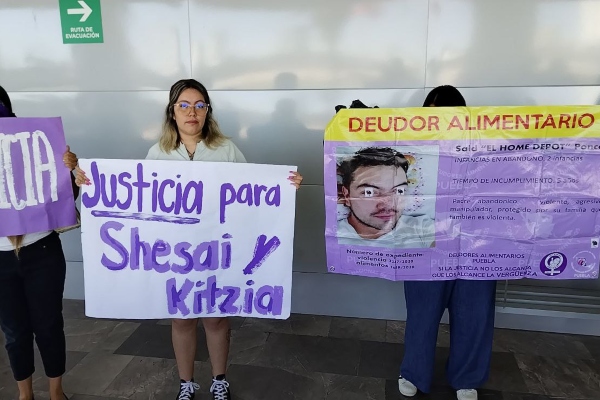 RUTA DE
EVACUACIÓN
ICIA
Justicia para
Shesai y
Kitzia
DEUDOR ALIMENTARIO
"EL HOME DEPOT"
INFANCIAS EN ABANDONO: 2 infancias
TIEMPO DE INCUMPLIMIENTO:
Padre abandonico. Violento, agresivo
manipulador, protegido por su familia que
también es violenta.
Número de expediente
violencia
alimentos
DEUDORES ALIMENTARIOS
PUEBLA
SI LA JUSTICIA NO LOS ALCANZA
QUE LOS ALCANCE LA VERGÜENZA